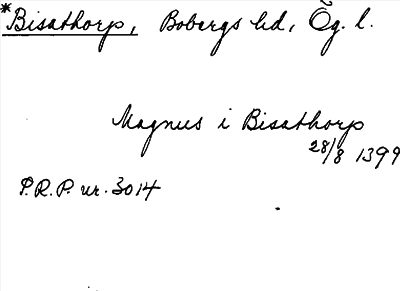 *Bisathorp, Bobergs hd, Ög. l.
Magnus i Bisathorp
28/8 1399
P.R.P. nr. 3014